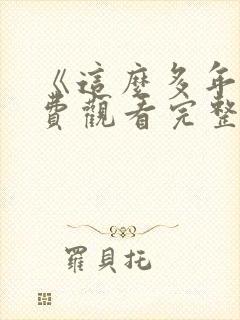 《這麼多年
費觀看完整
羅貝托